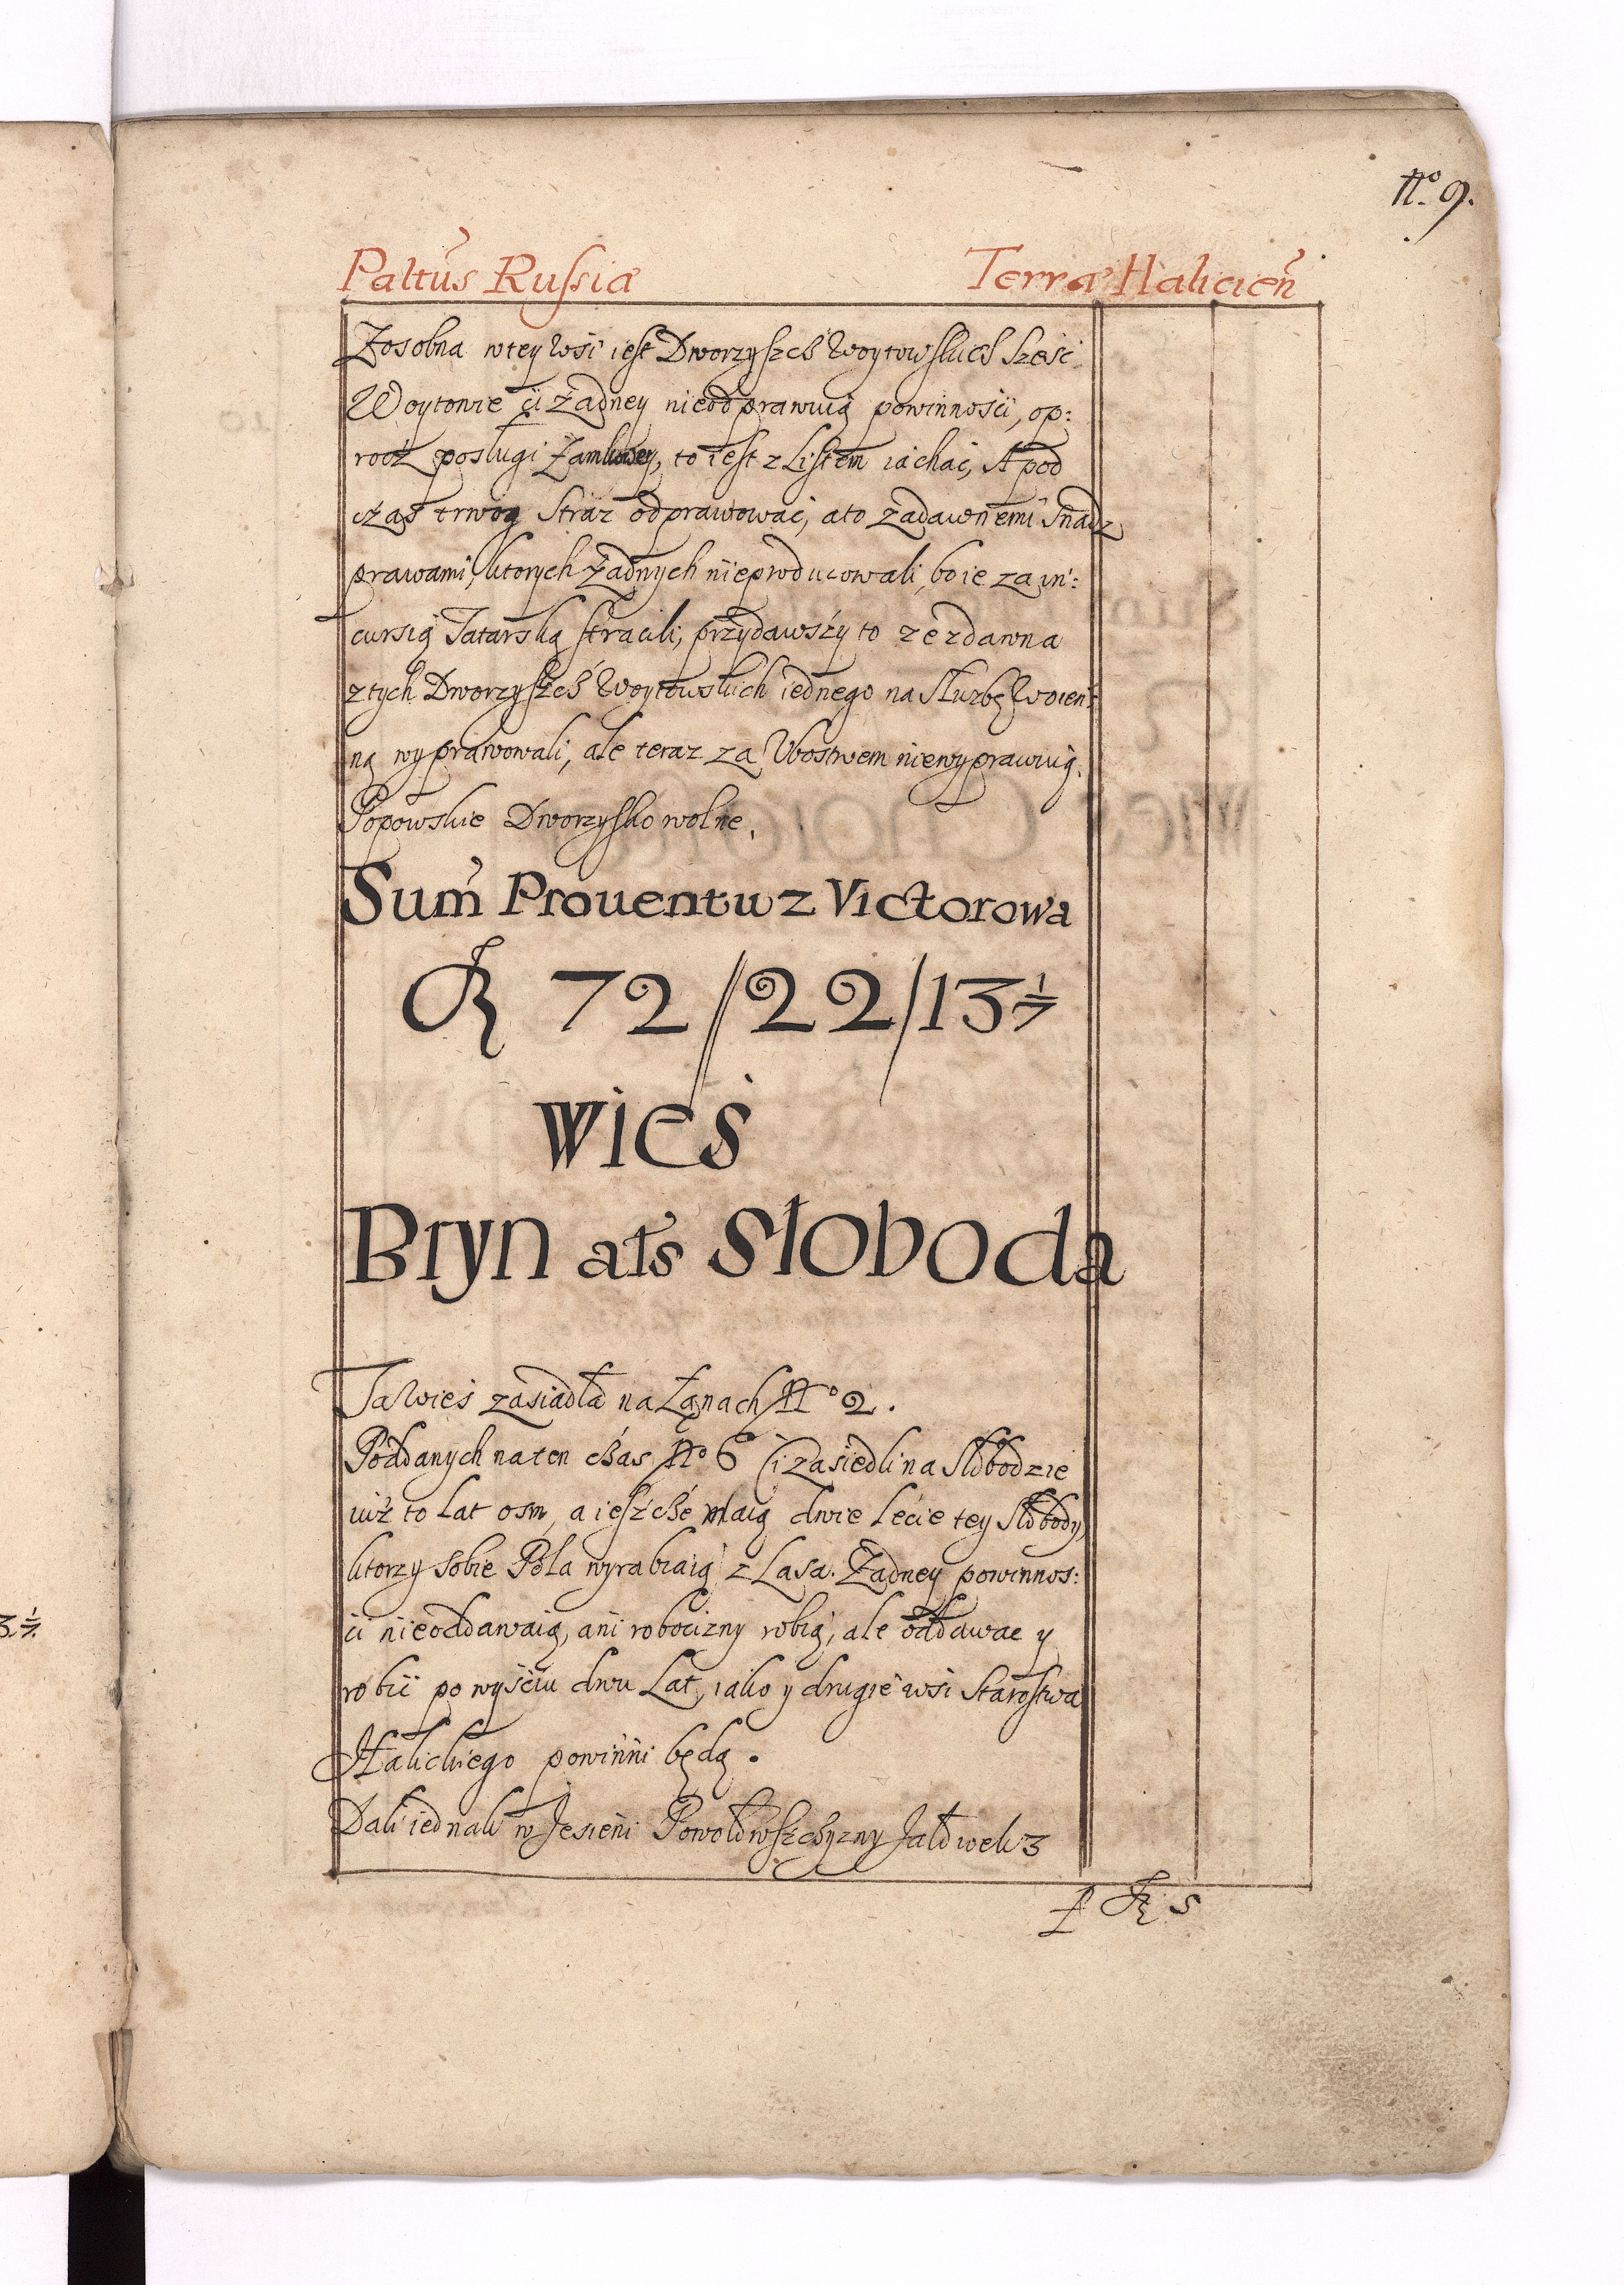 No. 9.
Paltus Russiæ Terræ Halicien
Zosobna wtey wsi iest Dworzyszcz Woytowskich Sześć
Woytowie ci żadney nieodprawuią powinności, op:
rócz posługi Zamkowey, to iest z Listem iachać, A pod
czas trwog Straż odprawować, ato zadawnemi snadz
prawami, ktorych żadnych nieproducowali, bo ie za in:
cursią Tatarską stracili, przydawszy to że zdawna
z tych Dworzyszcz Woytowskich iednego na Służbę Woien:
ną wyprawowali, ale teraz za Ubostwem niewyprawuią.
Popowskie Dworzysko wolne.
Sum Prouentu z Victorowa
72 // 22 / 13 1/7
Wieś
Bryn als Słoboda
Ta Wieś zasiadła na Łanach No 2.
Poddanych na ten czas No 6 Ci zasiedli na Słobodzie
iuż to lat osm, a ieszcze maią dwie lecie tey Słobody,
ktorzy sobie Pola wyrabiaią z Lasa. Żadney powinnoś:
ci nieoddawaią, ani robocizny robią, ale oddawac y
robić po wyściu dwu Lat, iako y drugie wsi Starostwa
Halickiego powinni będą.
Dali iednak w Jesieni Powołowszczyzny Jałowek 3
5
3 1/7.